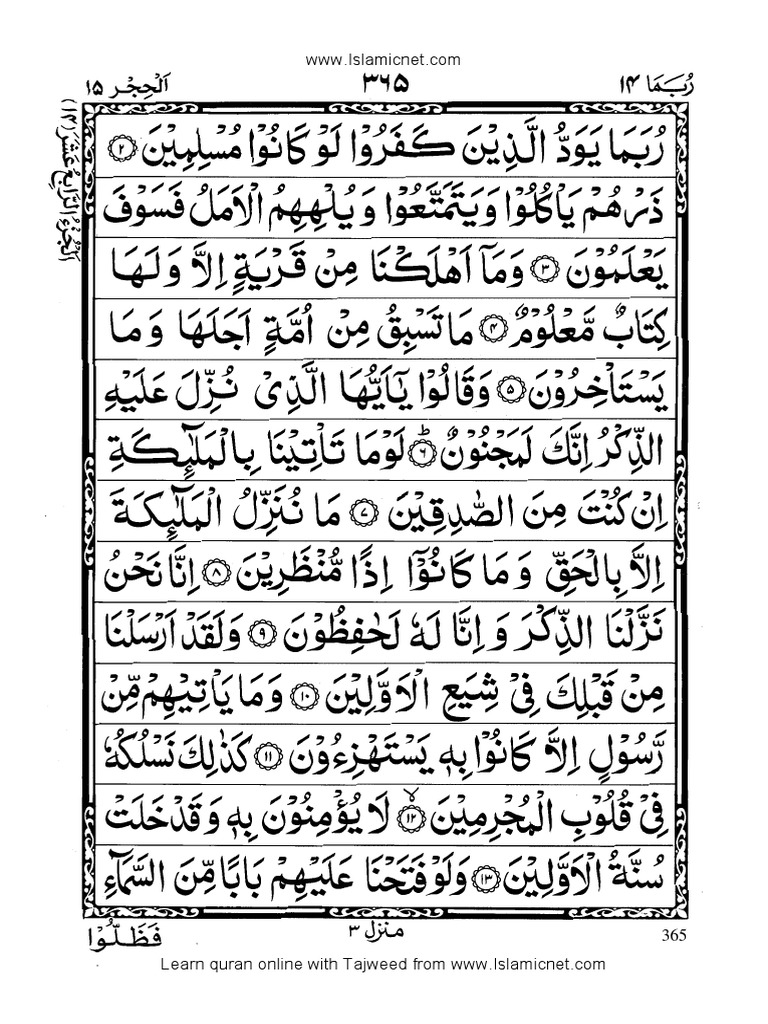 www.Islamicnet.com
رُبَمَا ١٤ ٣٦٥ اَلْحِجْر ١٥
اَلْجُزْءُ الرَّابِعُ عَشَرَ (١٤)
رُبَمَا يَوَدُّ الَّذِيْنَ كَفَرُوْا لَوْ كَانُوْا مُسْلِمِيْنَ ۝٢
ذَرْهُمْ يَاْكُلُوْا وَيَتَمَتَّعُوْا وَيُلْهِهِمُ الْاَمَلُ فَسَوْفَ
يَعْلَمُوْنَ ۝٣ وَمَآ اَهْلَكْنَا مِنْ قَرْيَةٍ اِلَّا وَلَهَا
كِتَابٌ مَّعْلُوْمٌ ۝٤ مَا تَسْبِقُ مِنْ اُمَّةٍ اَجَلَهَا وَمَا
يَسْتَاْخِرُوْنَ ۝٥ وَقَالُوْا يٰٓاَيُّهَا الَّذِيْ نُزِّلَ عَلَيْهِ
الذِّكْرُ اِنَّكَ لَمَجْنُوْنٌ ۝٦ؕ لَوْمَا تَاْتِيْنَا بِالْمَلٰٓئِكَةِ
اِنْ كُنْتَ مِنَ الصّٰدِقِيْنَ ۝٧ مَا نُنَزِّلُ الْمَلٰٓئِكَةَ
اِلَّا بِالْحَقِّ وَمَا كَانُوْٓا اِذًا مُّنْظَرِيْنَ ۝٨ اِنَّا نَحْنُ
نَزَّلْنَا الذِّكْرَ وَاِنَّا لَهٗ لَحٰفِظُوْنَ ۝٩ وَلَقَدْ اَرْسَلْنَا
مِنْ قَبْلِكَ فِيْ شِيَعِ الْاَوَّلِيْنَ ۝١٠ وَمَا يَاْتِيْهِمْ مِّنْ
رَّسُوْلٍ اِلَّا كَانُوْا بِهٖ يَسْتَهْزِءُوْنَ ۝١١ كَذٰلِكَ نَسْلُكُهٗ
فِيْ قُلُوْبِ الْمُجْرِمِيْنَ ۝١٢ۙ لَا يُؤْمِنُوْنَ بِهٖ وَقَدْ خَلَتْ
سُنَّةُ الْاَوَّلِيْنَ ۝١٣ وَلَوْ فَتَحْنَا عَلَيْهِمْ بَابًا مِّنَ السَّمَآءِ
365 منزل ٣ فَظَلُّوْا
Learn quran online with Tajweed from www.Islamicnet.com